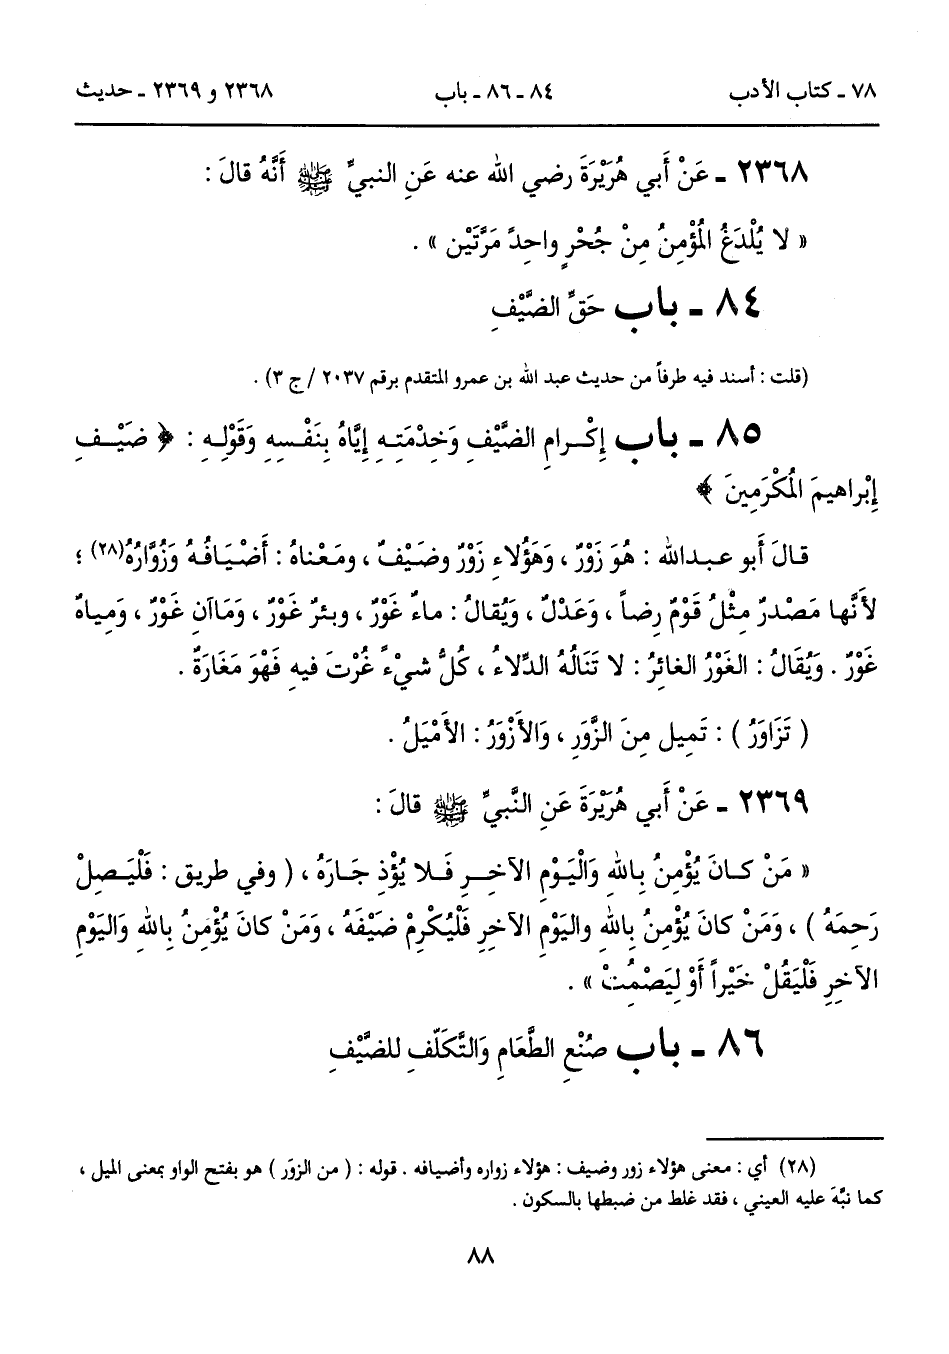 ٧٨ ـ كتاب الأدب ٨٤ ـ ٨٦ ـ باب ٢٣٦٨ و ٢٣٦٩ ـ حديث
٢٣٦٨ ـ عَنْ أَبي هُرَيْرَةَ رضي الله عنه عَنِ النبيِّ ﷺ أَنَّهُ قالَ :
« لا يُلْدَغُ المُؤْمِنُ مِنْ جُحْرٍ واحِدً مَرَّتَيْن » .
٨٤ ـ باب حَقِّ الضَّيْفِ
(قلت : أسند فيه طرفاً من حديث عبد الله بن عمرو المتقدم برقم ٢٠٣٧ / ج ٣) .
٨٥ ـ باب إكْرامِ الضَّيْفِ وَخِدْمَتِهِ إيَّاهُ بِنَفْسِهِ وَقَوْلِهِ : ﴿ ضَيْفِ
إبْراهيمَ المُكْرَمِينَ ﴾
قالَ أَبو عبدالله : هُوَ زَوْرٌ ، وَهَؤُلاءِ زَوْرٌ وضَيْفٌ ، ومَعْناهُ : أَضْيَافُهُ وَزُوَّارُهُ(٢٨) ؛
لأَنَّها مَصْدرٌ مِثْلُ قَوْمٌ رِضاً ، وَعَدْلٌ ، وَيُقالُ : ماءٌ غَوْرٌ ، وبئرٌ غَوْرٌ ، وَمَاآنِ غَوْرٌ ، وَمِياهٌ
غَوْرٌ . وَيُقَالُ : الغَوْرُ الغائِرُ : لا تَنَالُهُ الدِّلاءُ ، كُلُّ شيْءً غُرْتَ فيهِ فَهْوَ مَغَارَةٌ .
( تَزَاوَرُ ) : تَمِيل مِنَ الزَّوَرِ ، وَالأَزْوَرُ : الأَمْيَلُ .
٢٣٦٩ ـ عَنْ أَبي هُرَيْرَةَ عَنِ النَّبيِّ ﷺ قالَ :
« مَنْ كانَ يُؤْمِنُ بِاللهِ وَالْيَوْمِ الآخِرِ فَلا يُؤْذِ جَارَهُ ، ( وفي طريق : فَلْيَصِلْ
رَحِمَهُ ) ، وَمَنْ كانَ يُؤْمِنُ بِاللهِ واليَوْمِ الآخرِ فَلْيُكْرِمْ ضيْفَهُ ، وَمَنْ كانَ يُؤْمِنُ بِاللهِ وَاليَوْمِ
الآخِرِ فَلْيَقُلْ خَيْراً أَوْ لِيَصْمُِتْ » .
٨٦ ـ باب صُنْعِ الطَّعَامِ وَالتَّكَلّفِ للضَّيْفِ
(٢٨) أي : معنى هؤلاء زور وضيف : هؤلاء زواره وأضيافه . قوله : ( من الزوَر ) هو بفتح الواو بمعنى الميل ،
كما نبَّهَ عليه العيني ، فقد غلط من ضبطها بالسكون .
٨٨